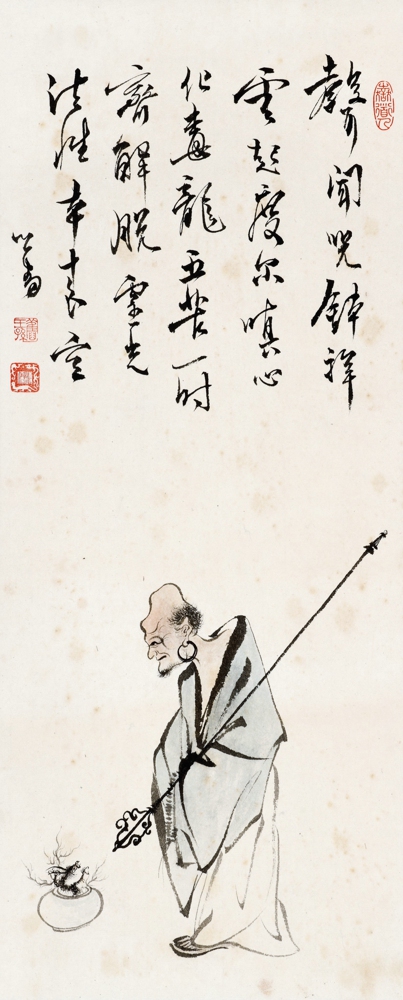 聲聞咒鉢祥
雲起度尔嗔心
化毒龍五苦一時
齊解脫靈光
法性本來空
心畬